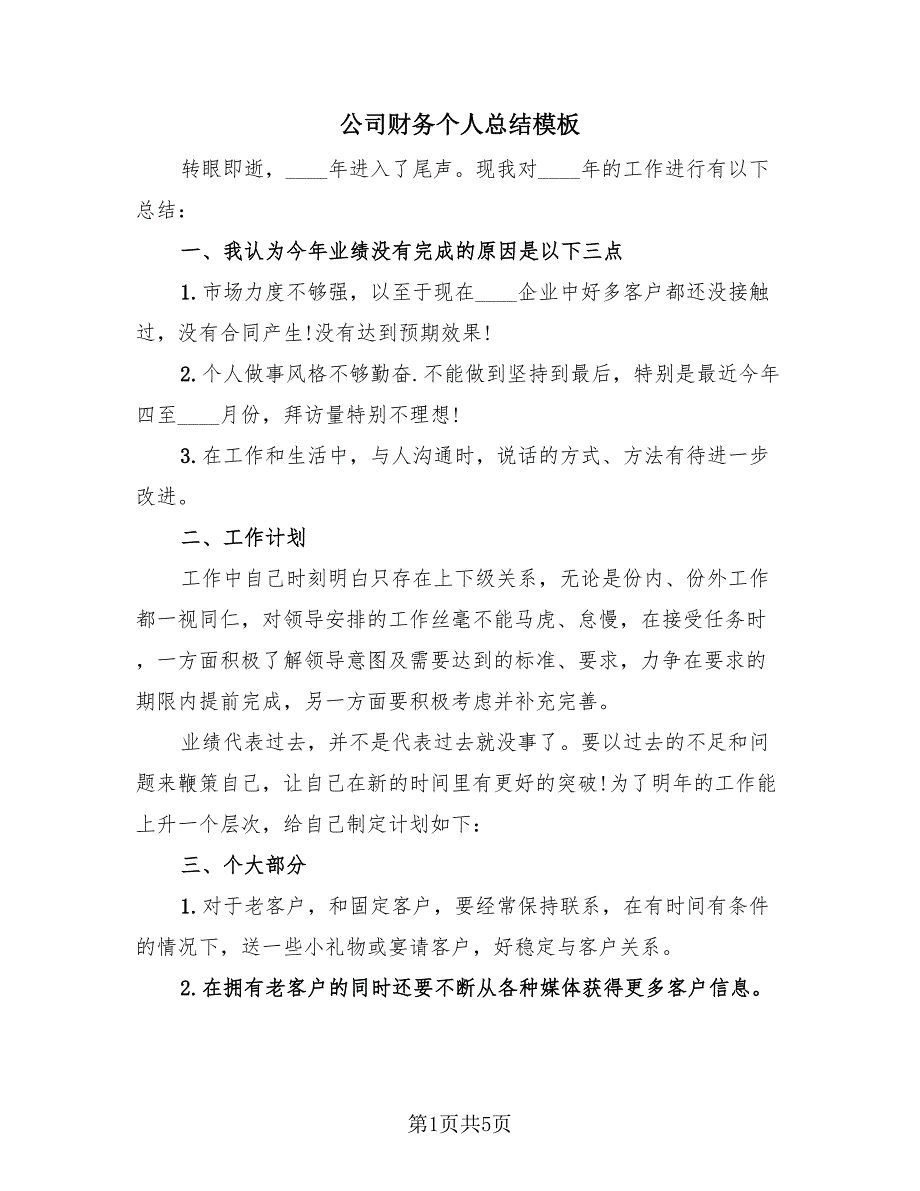 公司财务个人总结模板
转眼即逝，____年进入了尾声。现我对____年的工作进行有以下
总结：
一、我认为今年业绩没有完成的原因是以下三点
1.市场力度不够强，以至于现在____企业中好多客户都还没接触
过，没有合同产生!没有达到预期效果!
2.个人做事风格不够勤奋.不能做到坚持到最后，特别是最近今年
四至____月份，拜访量特别不理想!
3.在工作和生活中，与人沟通时，说话的方式、方法有待进一步
改进。
二、工作计划
工作中自己时刻明白只存在上下级关系，无论是份内、份外工作
都一视同仁，对领导安排的工作丝毫不能马虎、怠慢，在接受任务时
，一方面积极了解领导意图及需要达到的标准、要求，力争在要求的
期限内提前完成，另一方面要积极考虑并补充完善。
业绩代表过去，并不是代表过去就没事了。要以过去的不足和问
题来鞭策自己，让自己在新的时间里有更好的突破!为了明年的工作能
上升一个层次，给自己制定计划如下：
三、个大部分
1.对于老客户，和固定客户，要经常保持联系，在有时间有条件
的情况下，送一些小礼物或宴请客户，好稳定与客户关系。
2.在拥有老客户的同时还要不断从各种媒体获得更多客户信息。
第1页共5页